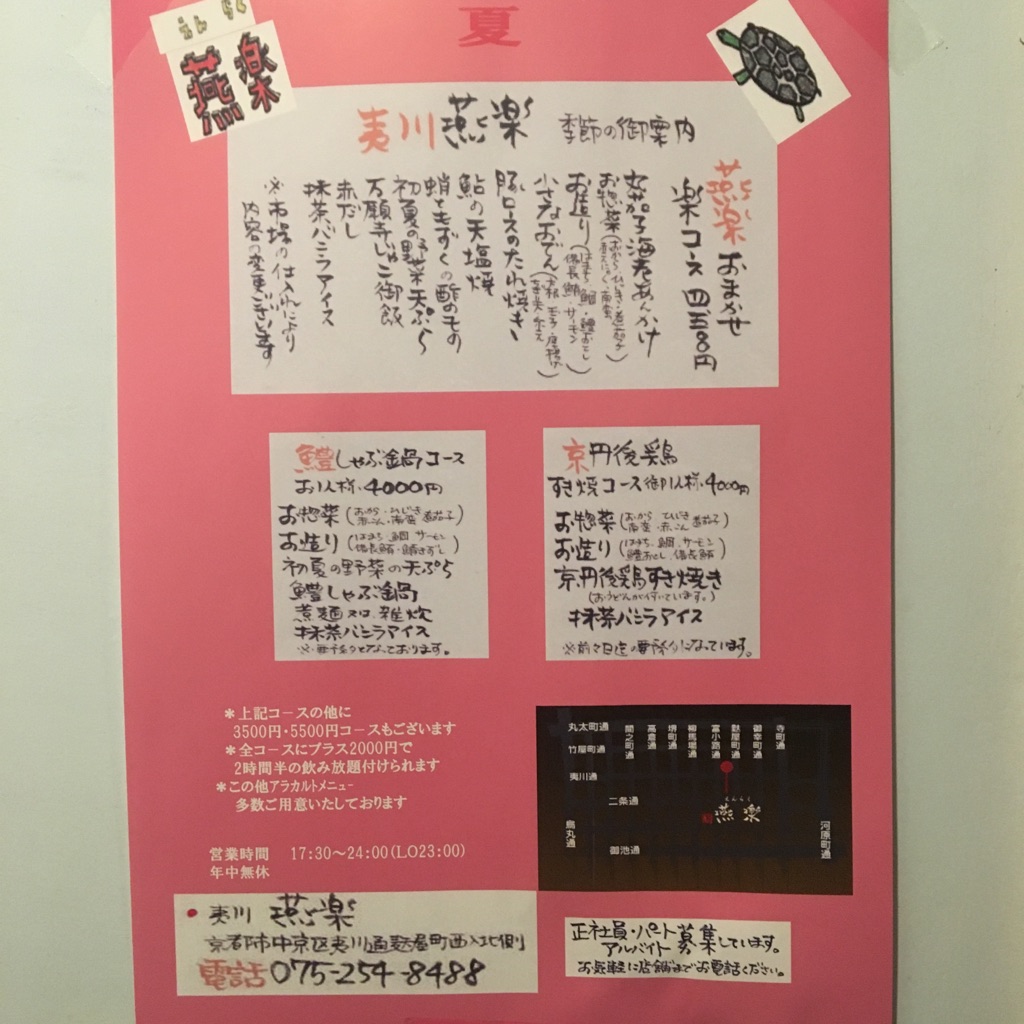 夏
えんらく
燕楽
夷川 燕楽 季節の御案内
燕楽おまかせ
楽コース 四五〇〇円
茄子海老あんかけ
お惣菜
お造り(はまち・鯛・鱧おとし
備長鮪・サーモン)
小さなおでん
豚ロースのたれ焼き
鮎の天塩焼
蛸ともずくの酢のもの
初夏の野菜天ぷら
万願寺じゃこ御飯
赤だし
抹茶バニラアイス
※市場の仕入れにより
内容の変更ございます
鱧しゃぶ鍋コース
お1人様・4000円
お惣菜(おから・ひじき
赤こん・南蛮 茄子)
お造り(はまち・鯛 サーモン
備長鮪・鯖きずし)
初夏の野菜の天ぷら
鱧しゃぶ鍋
煮麺又は雑炊
抹茶バニラアイス
※要予約となっております。
京丹後鶏
すき焼コース 御1人様・4000円
お惣菜(おから ひじき
南蛮・赤こん 茄子)
お造り(はまち、鯛、サーモン
鱧おとし、備長鮪)
京丹後鶏すき焼き
(おうどんが付いています。)
抹茶バニラアイス
※前々日迄の要予約になっています。
*上記コースの他に
3500円・5500円コースもございます
*全コースにプラス2000円で
2時間半の飲み放題付けられます
*この他アラカルトメニュー
多数ご用意いたしております
営業時間 17:30~24:00(LO23:00)
年中無休
丸太町通
竹屋町通
夷川通
二条通
御池通
烏丸通
間之町通
高倉通
堺町通
柳馬場通
富小路通
麩屋町通
御幸町通
寺町通
河原町通
えんらく
燕楽
夷川 燕楽
京都市中京区夷川通麩屋町西入北側
電話 075-254-8488
正社員・パート
アルバイト 募集しています。
お気軽に店舗までお電話ください。